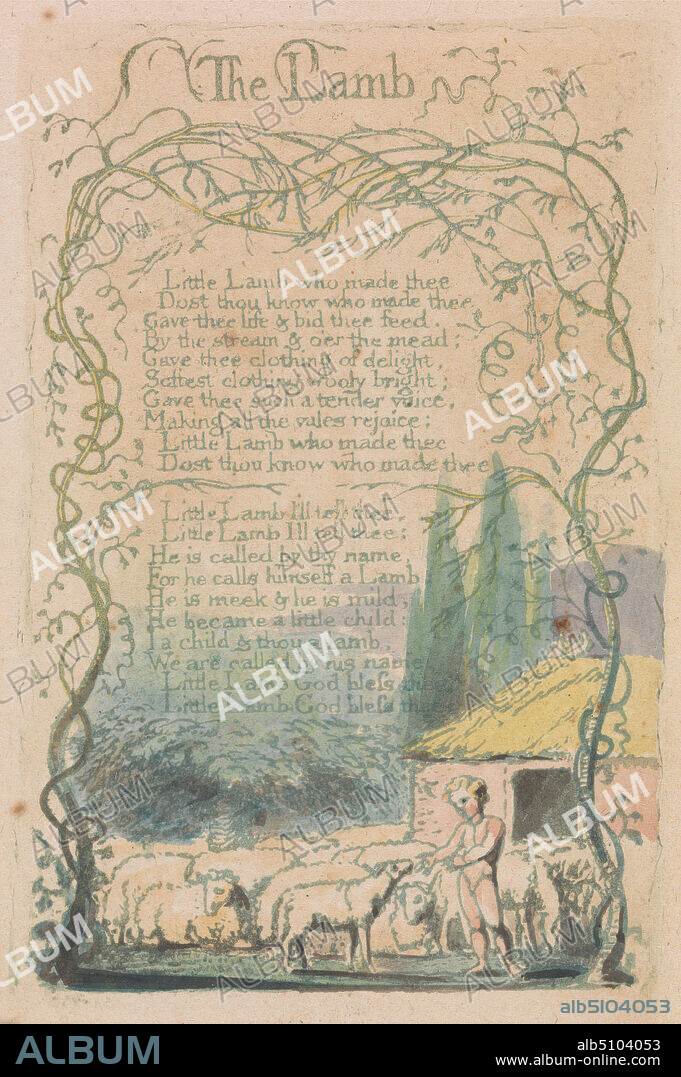 The Lamb
Little Lamb who made thee
Dost thou know who made thee
Gave thee life & bid thee feed,
By the stream & o'er the mead;
Gave thee clothing of delight,
Softest clothing wooly bright;
Gave thee such a tender voice,
Making all the vales rejoice:
Little Lamb who made thee
Dost thou know who made thee
Little Lamb I'll tell thee,
Little Lamb I'll tell thee;
He is called by thy name,
For he calls himself a Lamb
He is meek & he is mild,
He became a little child:
I a child & thou a lamb,
We are called by his name
Little Lamb God bless thee
Little Lamb God bless thee
ALBUM
alb5104053
ALBUM
alb5104053
www.album-online.com